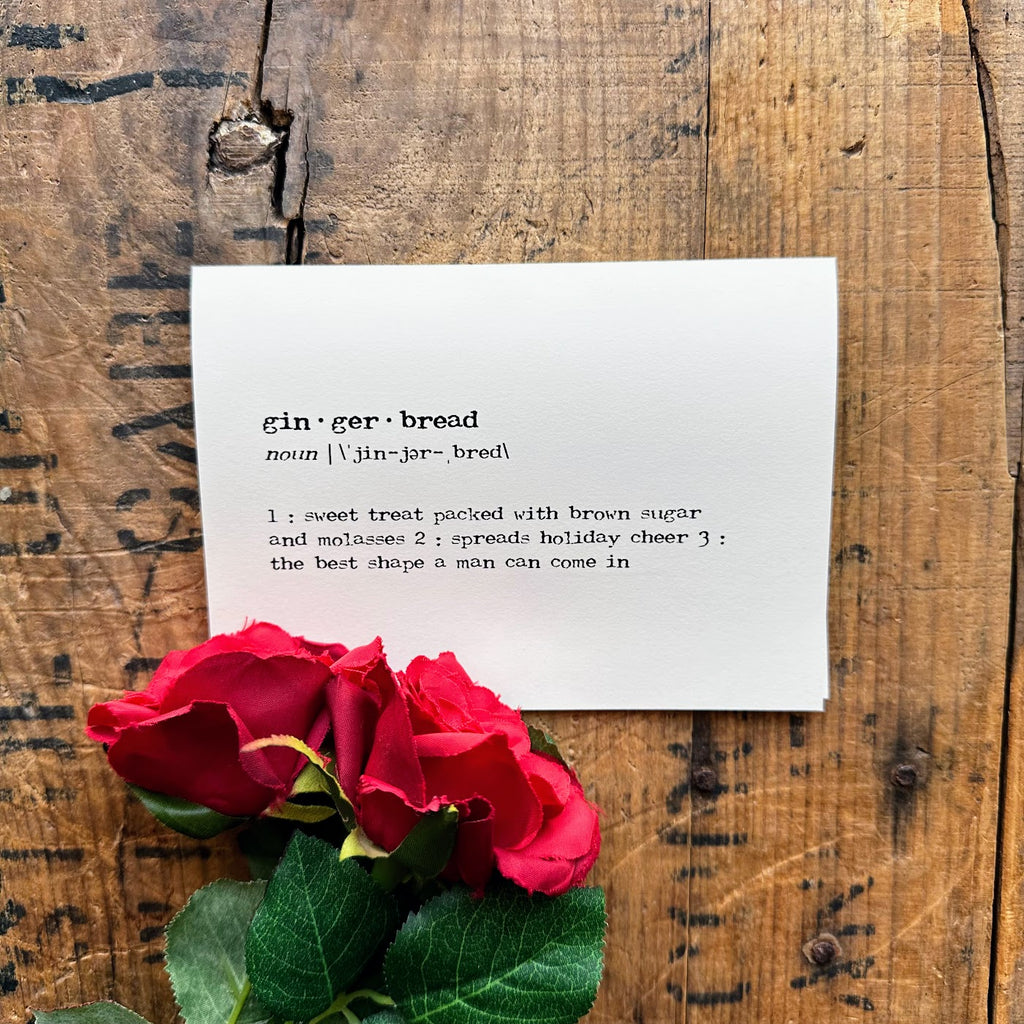 gin·ger·bread
noun |\ˈjin-jər-ˌbred\
1 : sweet treat packed with brown sugar
and molasses 2 : spreads holiday cheer 3 :
the best shape a man can come in